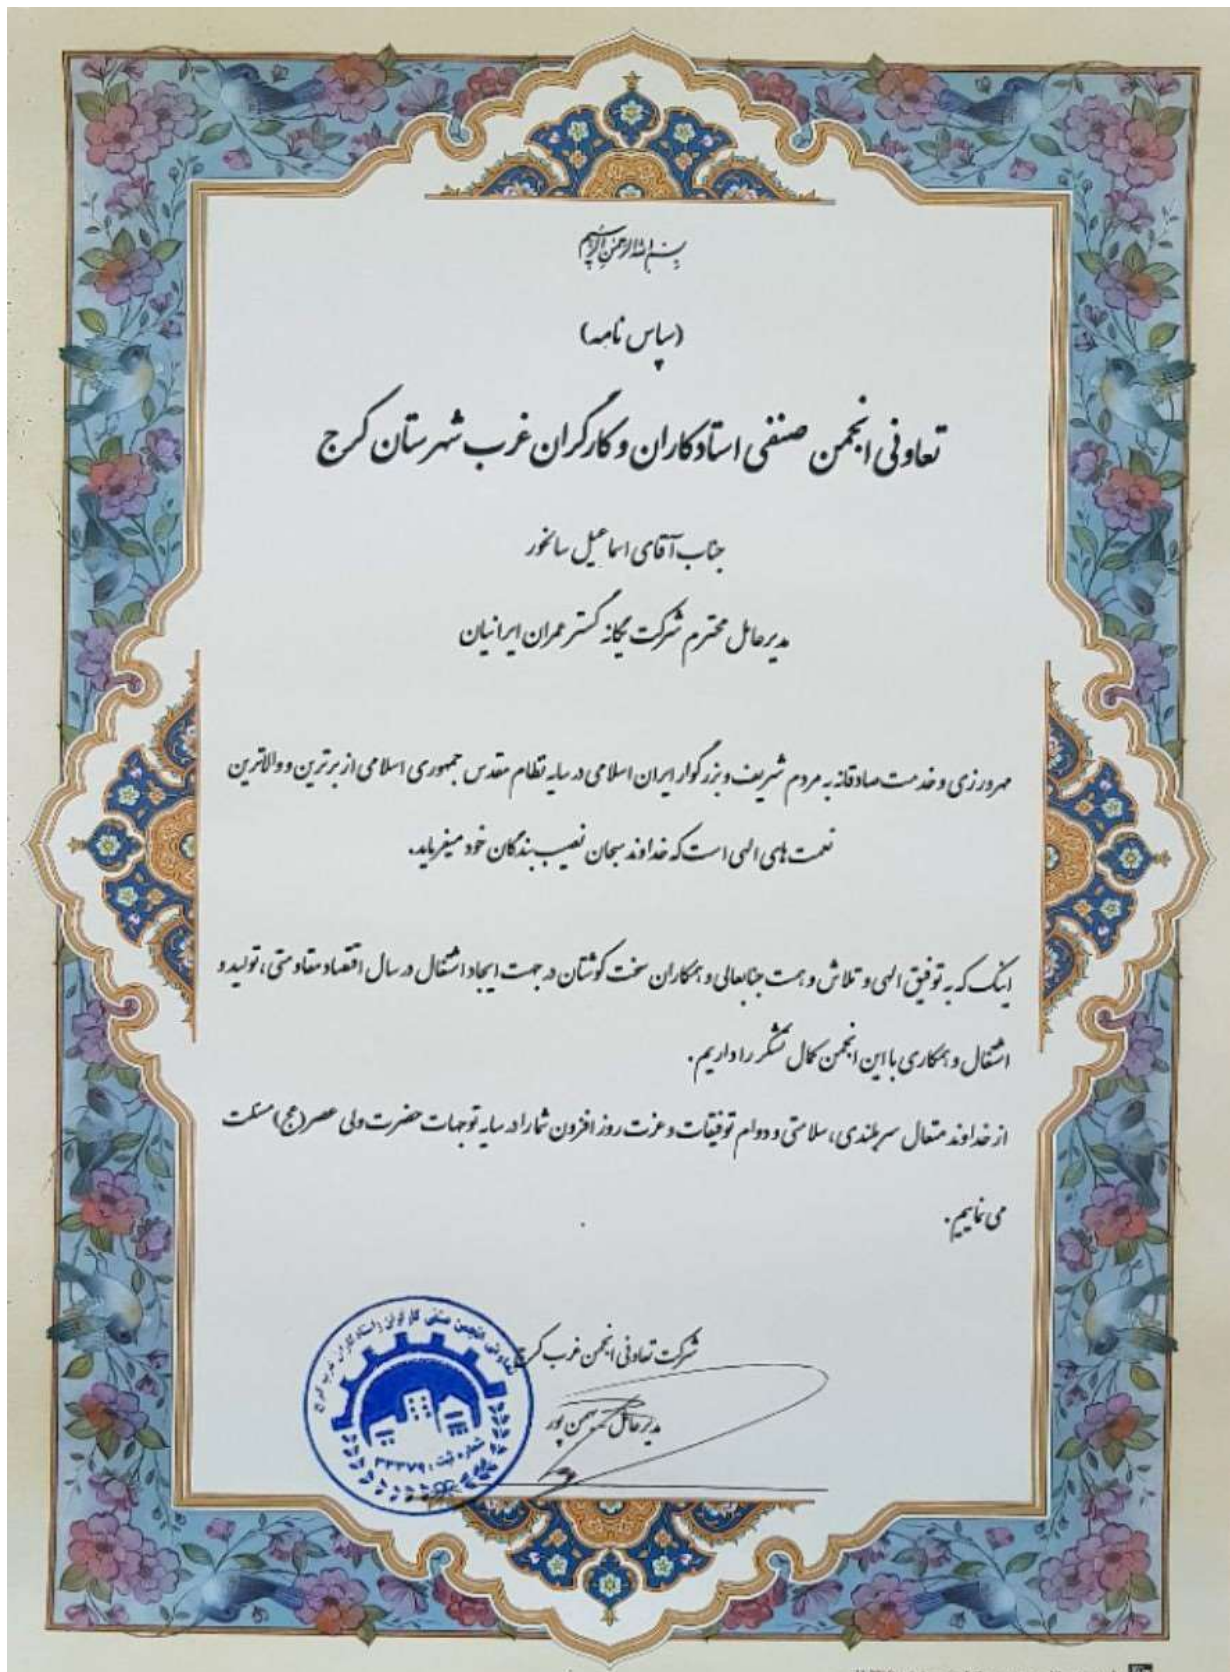 بسم الله الرحمن الرحیم
(سپاس نامه)
تعاونی انجمن صنفی استادکاران و کارگران غرب شهرستان کرج
جناب آقای اسماعیل سالخور
مدیرعامل محترم شرکت یگانه گستر عمران ایرانیان
مهرورزی و خدمت صادقانه به مردم شریف و بزرگوار ایران اسلامی در سایه نظام مقدس جمهوری اسلامی از برترین و والاترین
نعمت های الهی است که خداوند سبحان نصیب بندگان خود میفرماید.
اینک که به توفیق الهی و تلاش و همت جنابعالی و همکاران سخت کوشتان در جهت ایجاد اشتغال در سال اقتصاد مقاومتی، تولید و
اشتغال و همکاری با این انجمن کمال تشکر را داریم.
از خداوند متعال سربلندی، سلامتی و دوام توفیقات و عزت روز افزون شما را در سایه توجهات حضرت ولی عصر(عج) مسئلت
می نماییم.
شرکت تعاونی انجمن غرب کرج
مدیرعامل بهمن پور
تعاونی انجمن صنفی کارگران و استادکاران غرب کرج
شماره ثبت: ۲۳۳۷۹